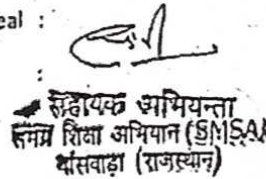 eal :
:
सहायक अभियन्ता
समग्र शिक्षा अभियान (SMSA)
बांसवाड़ा (राजस्थान)